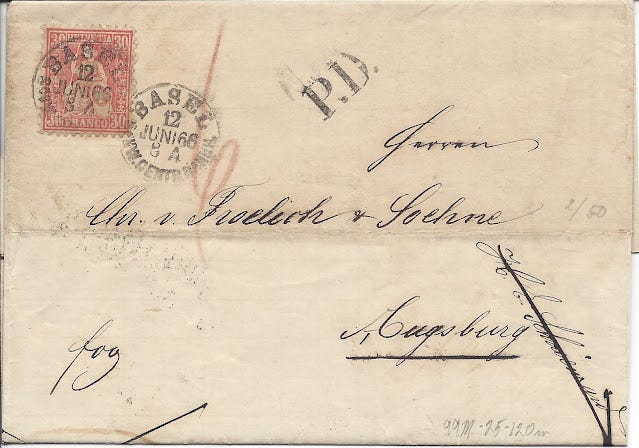 30 HELVETIA 30
30 FRANCO 30
BASEL
12
JUNI 66
8 A
BASEL
12
JUNI 66
8 A
P.D.
Herren
Chr. v. Froelich & Soehne
2/50
Augsburg
fog